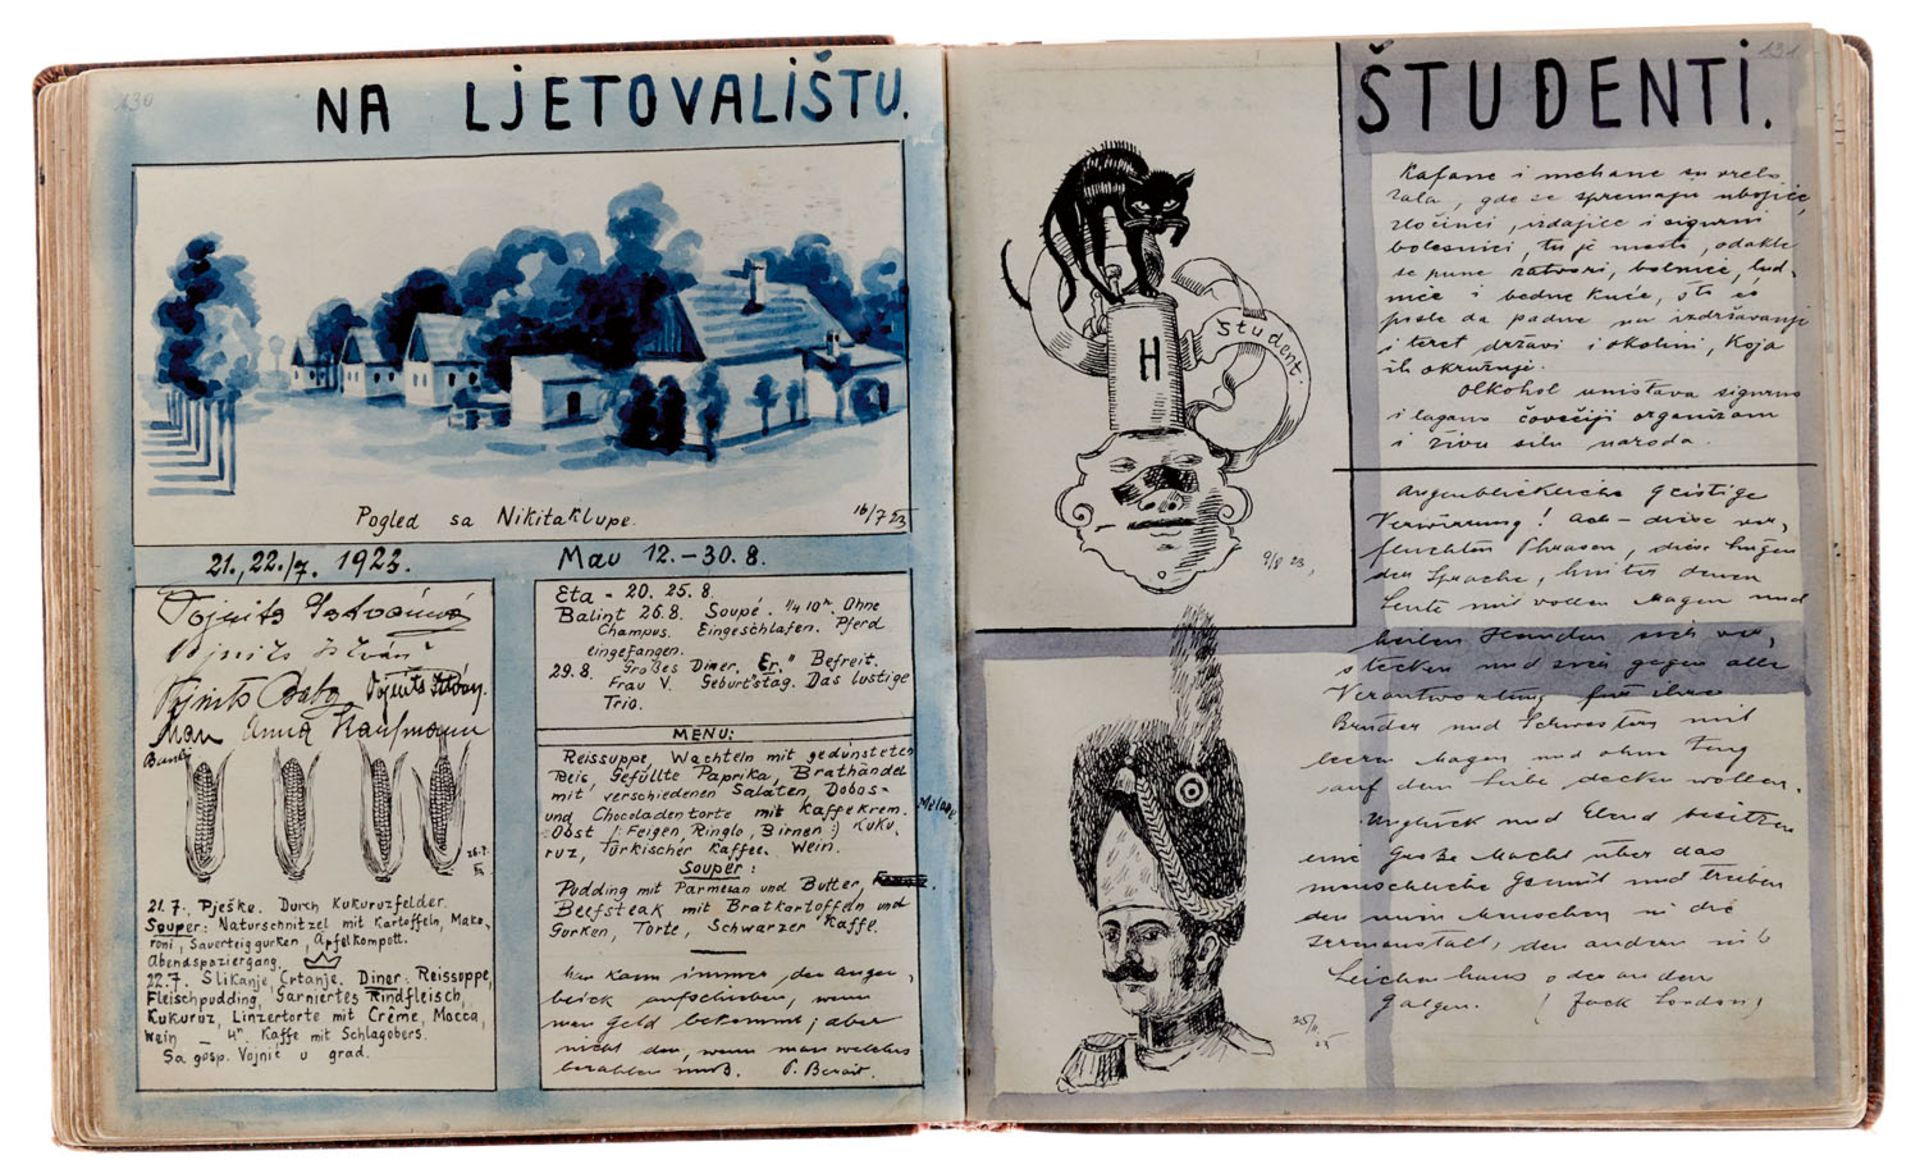 130
NA LJETOVALIŠTU.
Pogled sa Nikitaklupe.
16/7 23
21., 22./7. 1923.
Vojnits Istvánné
Vojnits István
Vojnits Baby Vojnits István.
Mau Anna Kaufmann
21.7. Pješke. Durch Kukuruzfelder.
Souper: Naturschnitzel mit Kartoffeln, Mako-
roni, Sauerteiggurken, Apfelkompott.
Abendspaziergang.
22.7. Slikanje, Crtanje. Diner: Reissoppe,
Fleischpudding, Garniertes Rindfleisch,
Kukuruz, Linzertorte mit Crême, Mocca,
Wein — 4h Kaffe mit Schlagobers.
Sa gosp. Vojnić u grad.
Mau 12.–30. 8.
Eta - 20. 25. 8.
Balint 26.8. Soupé. 1/4 10h. Ohne
Champus. Eingeschlafen. Pferd
eingefangen.
29.8. Großes Diner. "Er." Befreit.
Frau V. Geburtstag. Das lustige
Trio.
MENU:
Reissuppe, Wachteln mit gedünsteten
Reis, Gefüllte Paprika, Brathändel
mit verschiedenen Salaten, Dobos-
und Chocoladentorte mit Kaffekrem.
Obst /: Feigen, Ringlo, Birnen :) Kuku-
ruz, Türkischer Kaffee. Wein.
Souper:
Pudding mit Parmesan und Butter,
Beefsteak mit Bratkartoffeln und
Gurken, Torte, Schwarzer Kaffe.
Man kann immer den Augen-
blick aufschieben, wenn
man Geld bekommt; aber
nicht den, wenn man welches
bezahlen muß. P. Benoit.
131
ŠTUDENTI.
H
Student.
9/8 23,
Kafane i mehane su vrelo
zala, gde se spremaju ubojice,
zločinci, izdajice i sigurni
bolesnici, tu je mesto, odakle
se pune zatvori, bolnice, lud-
nice i bedne kuće, što će
posle da padne na izdržavanje
i teret državi i okolini, koja
ih okružuje.
Olkohol unistava sigurno
i lagano čovečiji organizam
i živu silu naroda.
Augenblickliche geistige
Verwirrung! Ach – diese ver-
fluchten Phrasen, diese Lügen
der Sprache, hinter denen
Leute mit vollen Magen und
heilen Hemden sich ver-
stecken und sich gegen alle
Verantwortung für ihre
Brüder und Schwestern mit
leeren Magen und ohne Feng
auf dem Leibe decken wollen.
Unglück und Elend besitzen
eine große Macht über das
menschliche Gemüt und treiben
den einen Menschen in die
Irrenanstalt, den andern ins
Leichenhaus oder an den
Galgen. (Jack London)